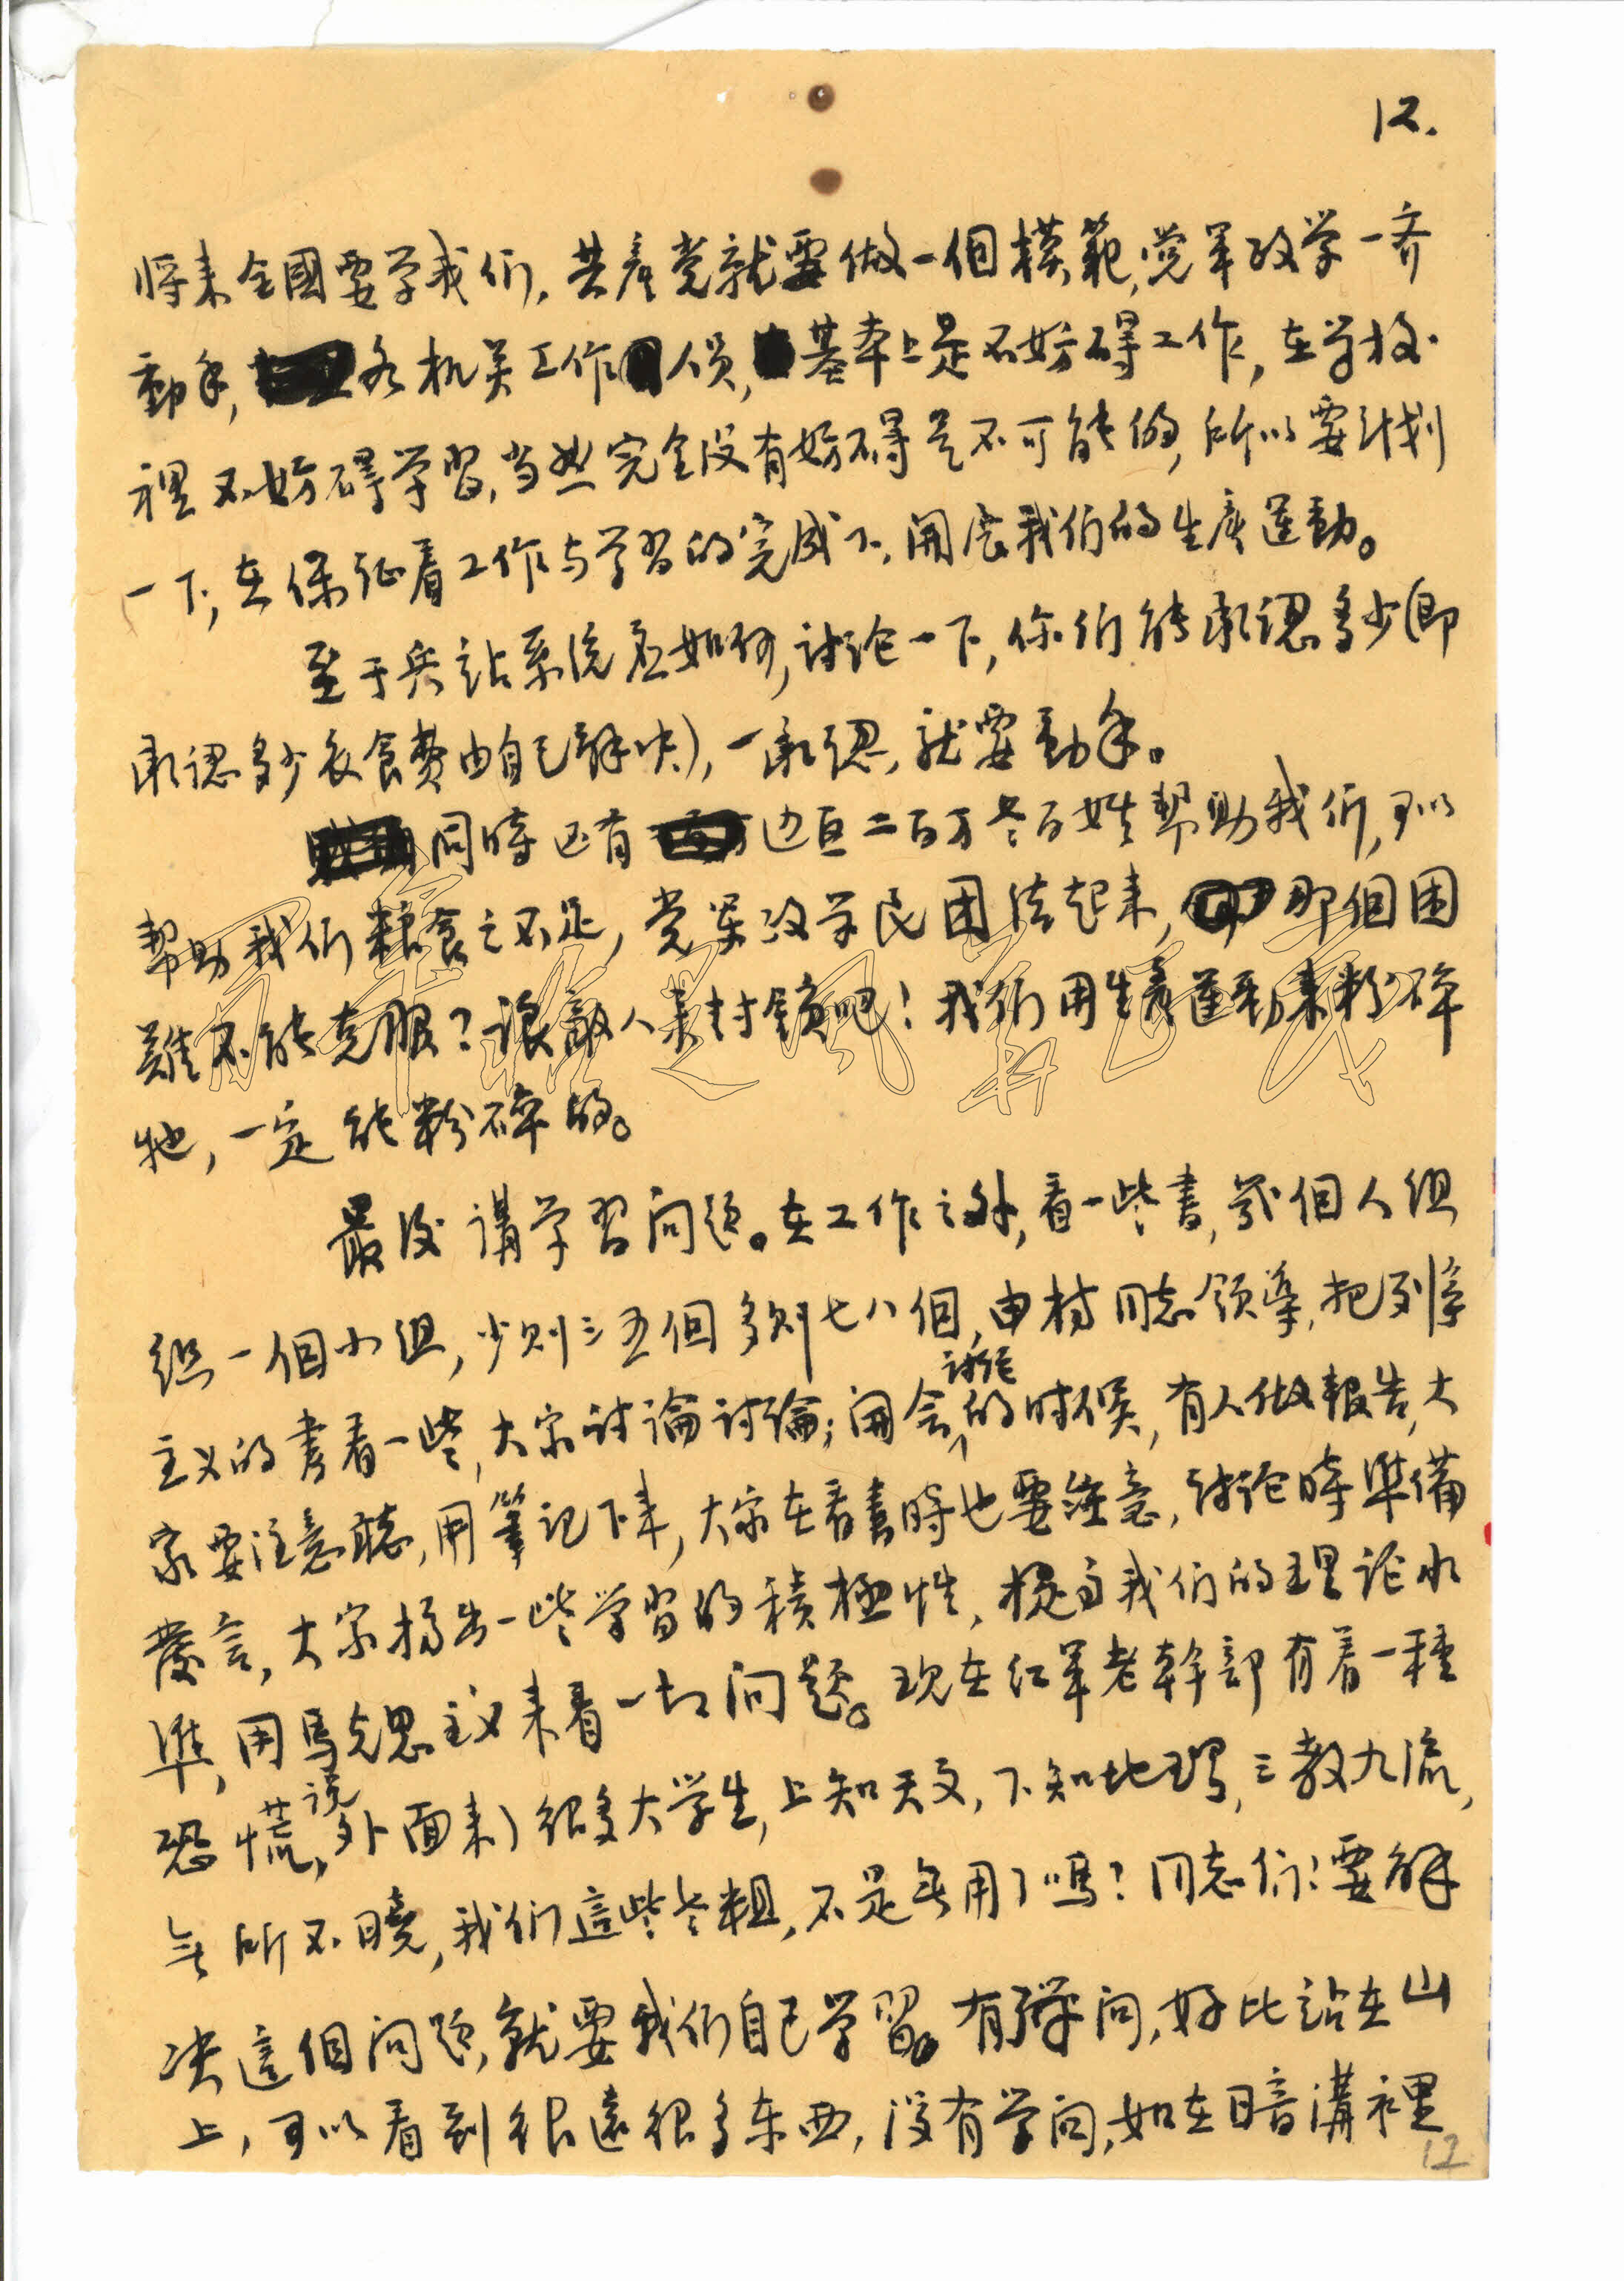 12.
将来全國要学我们，共產党就要做一個模範，党军政学一齐
動手，各机关工作人员，基本上是不妨碍工作，在学校
裡不妨碍学習，当然完全没有妨碍是不可能的，所以要计划
一下，在保证着工作与学習的完成下，開展我们的生産運動。
至于兵站系统应如何，讨论一下，你们能承認多少（即
承認多少衣食费由自己解决），一承認，就要動手。
同時还有边区二百万老百姓帮助我们，可以
帮助我们粮食之不足，党军政学民团结起来，那個困
難不能克服？讓敵人来封鎖吧！我们用生産運動来粉碎
牠，一定能粉碎的。
最後講学習问题。在工作之外，看一些書，幾個人组
织一個小组，少则三五個多则七八個，由 同志领導，把列寧
主义的書看一些，大家討論討論；開会讨论的时候，有人做報告，大
家要注意聽，用筆记下来，大家在看書時也要注意，讨论時準備
發言，大家揚出一些学習的積極性，提高我们的理论水
準，用馬克思主义来看一切问题。现在红軍老幹部有着一種
恐慌，说外面来了很多大学生，上知天文，下知地理，三教九流，
无所不曉，我们這些老粗，不是无用了嗎？同志们！要解
决這個问题，就要我们自己学習。有学问，好比站在山
上，可以看到很遠很多东西，没有学问，如在暗溝裡
12